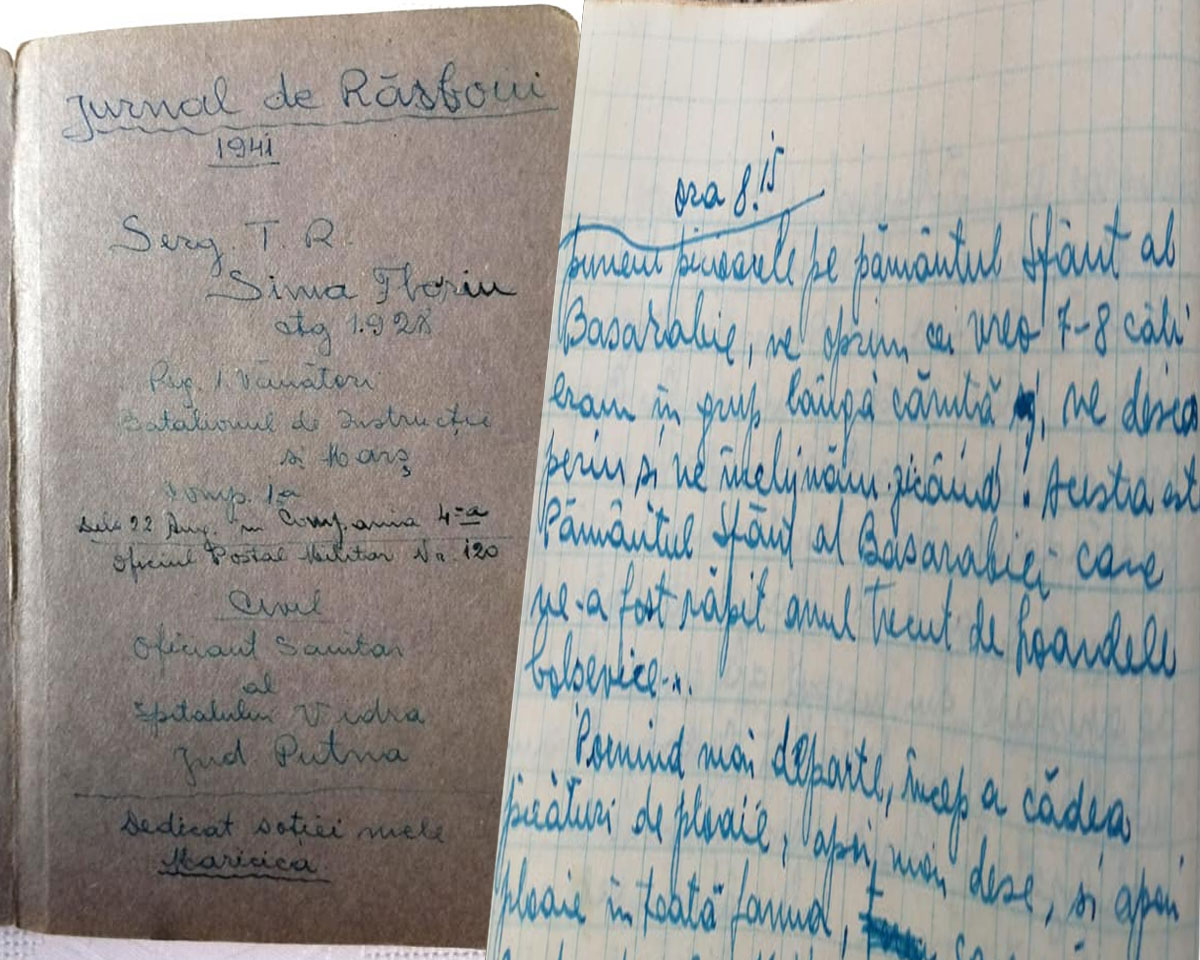 Jurnal de Răsboiu
1941
Serg. T. R.
Sima Florin
ctg 1.928
Reg. 1 Vânători
Batalionul de Instrucție
si Marș
Comp. 1-a
Dela 22 Aug. în Compania 4-a
Oficiul Postal Militar Nr. 120
Civil
Oficiant Sanitar
al
Spitalului Vidra
Jud Putna
Dedicat soției mele
Maricica
ora 8.15
punem picioarele pe pământul Sfânt al
Basarabie, ne oprim cei vreo 7-8 câti
eram în grup lângă căruță, ne desco
perim si ne închinăm zicând! Acesta est
Pământul Sfânt al Basarabiei care
ne-a fost răpit anul trecut de hoardele
bolsevice...
Pornind mai departe, încep a cădea
picături de ploaie, apoi mai dese, si apoi
ploaie în toată forma,